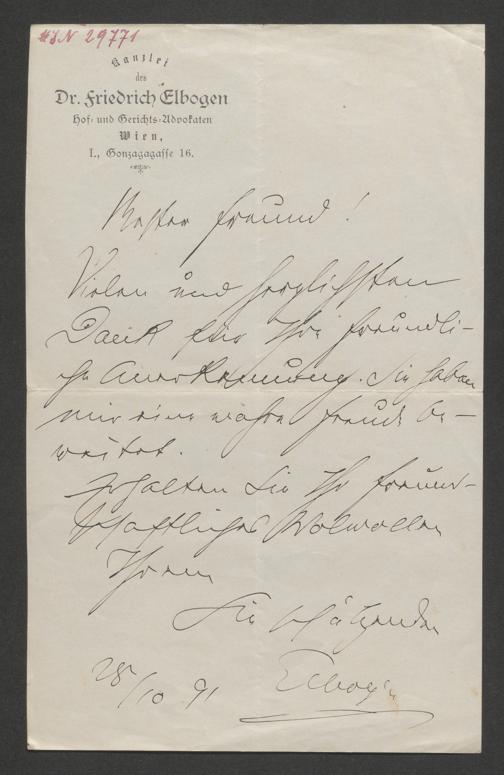 I.N 29771
Kanzlei
des
Dr. Friedrich Elbogen
Hof- und Gerichts-Advokaten
Wien,
I., Gonzagagasse 16.
Bester Freund!
Vielen und herzlichsten
Dank für Ihre freundli-
che Anerkennung. Sie haben
mir eine wahre Freude be-
reitet.
Erhalten Sie Ihr freund-
schaftliches Wolwollen
Ihrem
Sie schätzenden
Elbogen
28/10 91